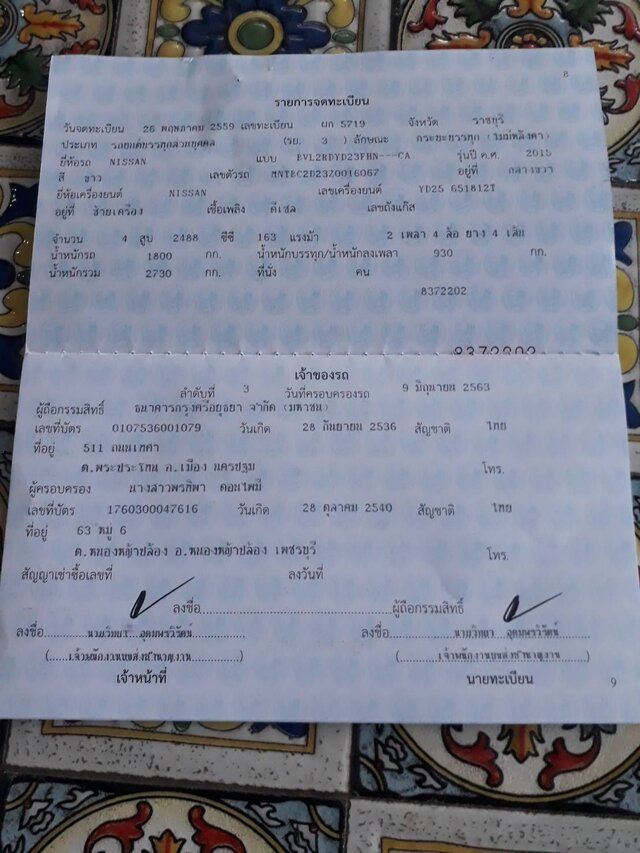 8
รายการจดทะเบียน
วันจดทะเบียน 26 พฤษภาคม 2559 เลขทะเบียน ผก 5719 จังหวัด ราชบุรี
ประเภท รถยนต์บรรทุกส่วนบุคคล (รย. 3 ) ลักษณะ กระบะบรรทุก (ไม่มีหลังคา)
ยี่ห้อรถ NISSAN แบบ BVL2RDYD23FHN---CA รุ่นปี ค.ศ. 2015
สี ขาว เลขตัวรถ MNTBC2D23Z0016067 อยู่ที่ กลางขวา
ยี่ห้อเครื่องยนต์ NISSAN เลขเครื่องยนต์ YD25 651812T
อยู่ที่ ซ้ายเครื่อง เชื้อเพลิง ดีเซล เลขถังแก๊ส
จำนวน 4 สูบ 2488 ซีซี 163 แรงม้า 2 เพลา 4 ล้อ ยาง 4 เส้น
น้ำหนักรถ 1800 กก. น้ำหนักบรรทุก/น้ำหนักลงเพลา 930 กก.
น้ำหนักรวม 2730 กก. ที่นั่ง คน
8372202
8372202
เจ้าของรถ
ลำดับที่ 3 วันที่ครอบครองรถ 9 มิถุนายน 2563
ผู้ถือกรรมสิทธิ์ ธนาคารกรุงศรีอยุธยา จำกัด (มหาชน)
เลขที่บัตร 0107536001079 วันเกิด 28 กันยายน 2536 สัญชาติ ไทย
ที่อยู่ 511 ถนนเทศา
ต.พระประโทน อ.เมือง นครปฐม โทร.
ผู้ครอบครอง นางสาวพรทิพา ดอนไพมี
เลขที่บัตร 1760300047616 วันเกิด 28 ตุลาคม 2540 สัญชาติ ไทย
ที่อยู่ 63 หมู่ 6
ต.หนองหญ้าปล้อง อ.หนองหญ้าปล้อง เพชรบุรี โทร.
สัญญาเช่าซื้อเลขที่ ลงวันที่
ลงชื่อ..............................ผู้ถือกรรมสิทธิ์
ลงชื่อ.........นายวิทยา...อุดมพรวิรัตน์......... ลงชื่อ.........นายวิทยา...อุดมพรวิรัตน์.........
(.....เจ้าพนักงานขนส่งชำนาญงาน.........) (.........เจ้าพนักงานขนส่งชำนาญงาน.........)
เจ้าหน้าที่ นายทะเบียน
9